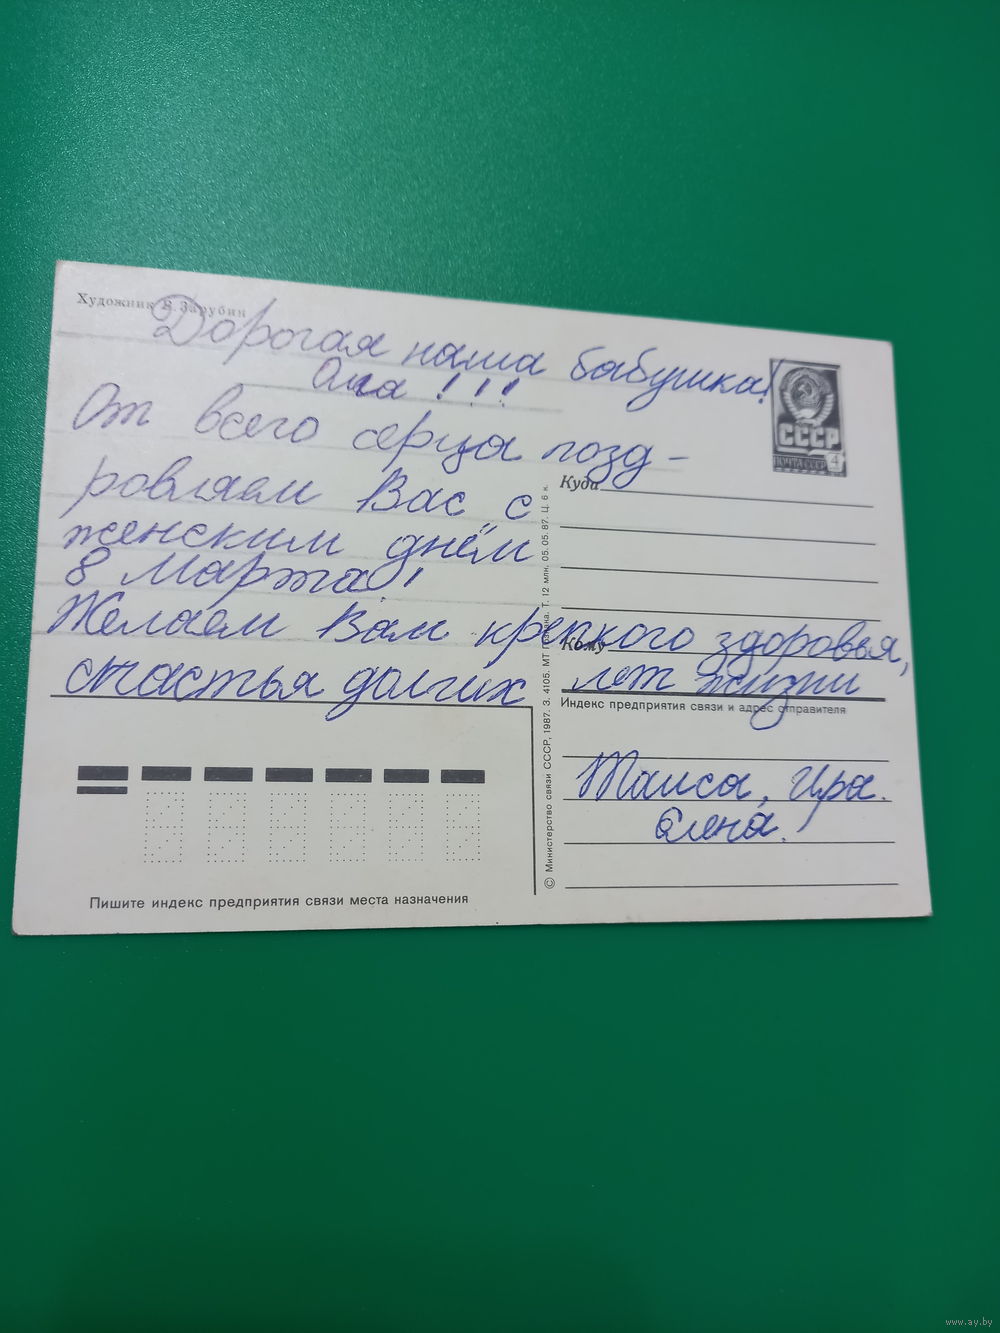 Художник В. Зарубин
Дорогая наша бабушка!
Оля!!!
От всего серца позд-
ровляем Вас с
женским днём
8 Марта!
Желаем Вам крепкого здоровья,
счастья долгих лет жизни
Таиса, Ира.
Олена.
СССР
ПОЧТА СССР 4
Куда
Кому
Индекс предприятия связи и адрес отправителя
© Министерство связи СССР, 1987. З. 4105. МТ Гознака. Т. 12 млн. 05.05.87. Ц. 6 к.
Пишите индекс предприятия связи места назначения
www.ay.by